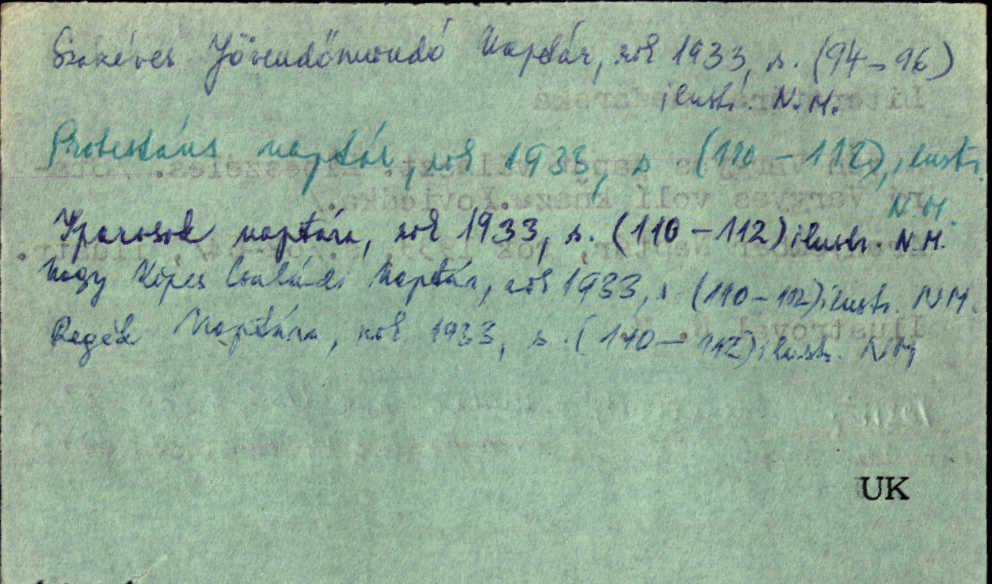 Százéves Jövendőmondó Naptár, rok 1933, s. (94-96)
ilustr. N.M.
Protestáns naptár, rok 1933, s (110-112), ilustr.
N.M.
Iparosok naptára, rok 1933, s. (110-112) ilustr. N.M.
Nagy Képes Családi Naptár, rok 1933, s (110-112) ilustr. N.M.
Regék Naptára, rok 1933, s. (110-112) ilustr. N.M
UK